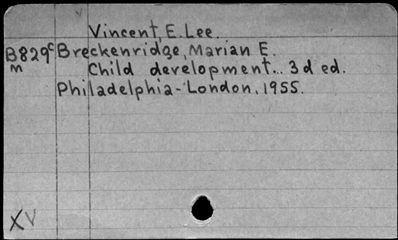 Vincent, E. Lee.
B829c Breckenridge, Marian E.
m Child development... 3d ed.
Philadelphia-London, 1955.
XV